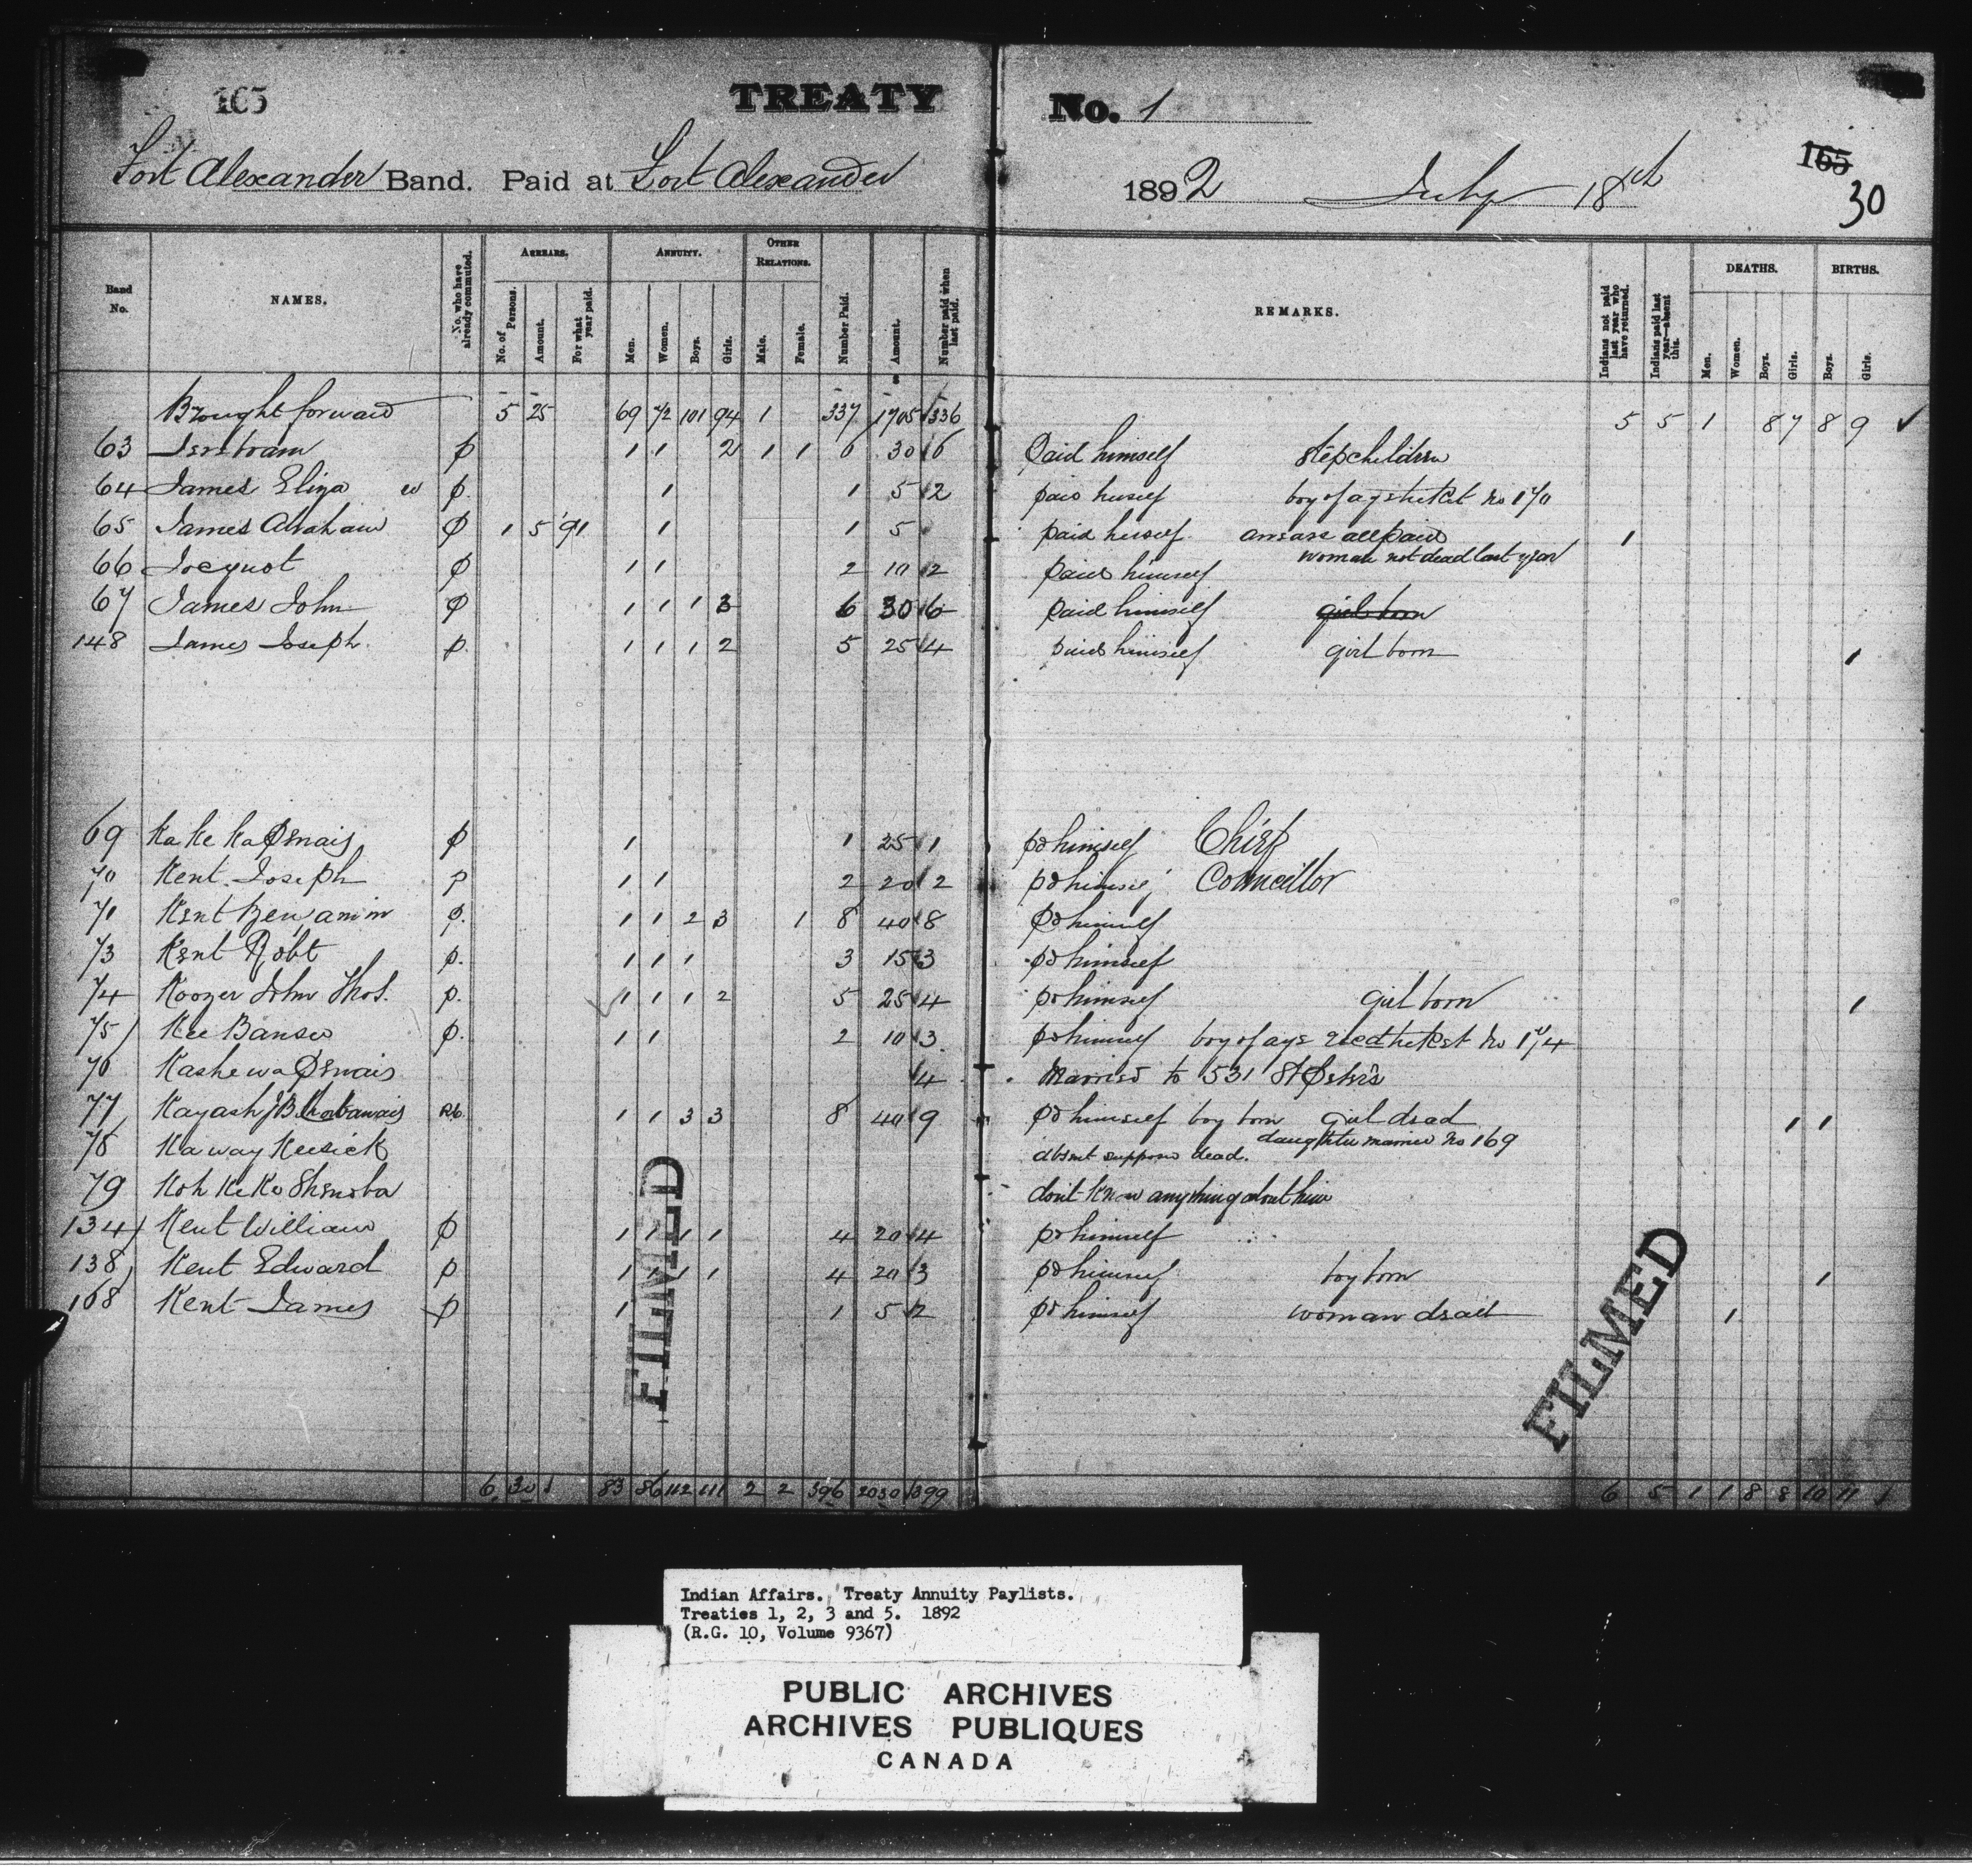 165 TREATY No. 1 165
30
Fort Alexander Band. Paid at Fort Alexander 1892 July 18th
Band No. NAMES. No. who have already commuted. ARREARS. No. of Persons. Amount. For what year paid. ANNUITY. Men. Women. Boys. Girls. OTHER RELATIONS. Male. Female. Number Paid. Amount. Number paid when last paid. REMARKS. Indians not paid last year who have returned. Indians paid last year—absent this. DEATHS. Men. Women. Boys. Girls. BIRTHS. Boys. Girls.
Brought forward 5 25 69 72 101 94 1 337 1705 336 5 5 1 8 7 8 9 ✓
63 p 1 1 2 1 1 6 30 6 Paid himself stepchildren
64 James Eliza w p 1 1 5 2 paid herself boy of age ticket No 170
65 James Abraham p 1 5 '91 1 1 5 paid herself arrears all paid 1
66 p 1 1 2 10 2 paid himself woman not dead last year
67 James John p 1 1 1 3 6 30 6 paid himself girl born
148 James Joseph p 1 1 1 2 5 25 4 paid himself girl born 1
69 Ka Ke Ka Penais p 1 1 25 1 pd himself Chief
70 Kent Joseph p 1 1 2 20 2 pd himself Councillor
71 Kent Benjamin p. 1 1 2 3 1 8 40 8 pd himself
73 Kent Robt p. 1 1 1 3 15 3 pd himself
74 Koozer John Thos. p. 1 1 1 2 5 25 4 pd himself girl born 1
75 Kee Bansee p. 1 1 2 10 3 pd himself boy of age ticket No 174
76 Kashewa Penais 4 Married to 531 St Peters
77 Kayash JB Rb. 1 1 3 3 8 40 9 pd himself boy born girl dead 1 1
daughter married No 169
78 Kaway Keesick absent suppose dead.
79 Koh Ke Ke Shenoba dont know anything about him
134 Kent William p 1 1 1 1 4 20 4 pd himself
138 Kent Edward p 1 1 1 1 4 20 3 pd himself boy born 1
168 Kent James p 1 1 5 2 pd himself woman dead 1
6 30 1 83 86 112 111 2 2 396 2030 399 6 5 1 1 8 8 10 11
FILMED
FILMED
Indian Affairs. Treaty Annuity Paylists.
Treaties 1, 2, 3 and 5. 1892
(R.G. 10, Volume 9367)
PUBLIC ARCHIVES
ARCHIVES PUBLIQUES
CANADA